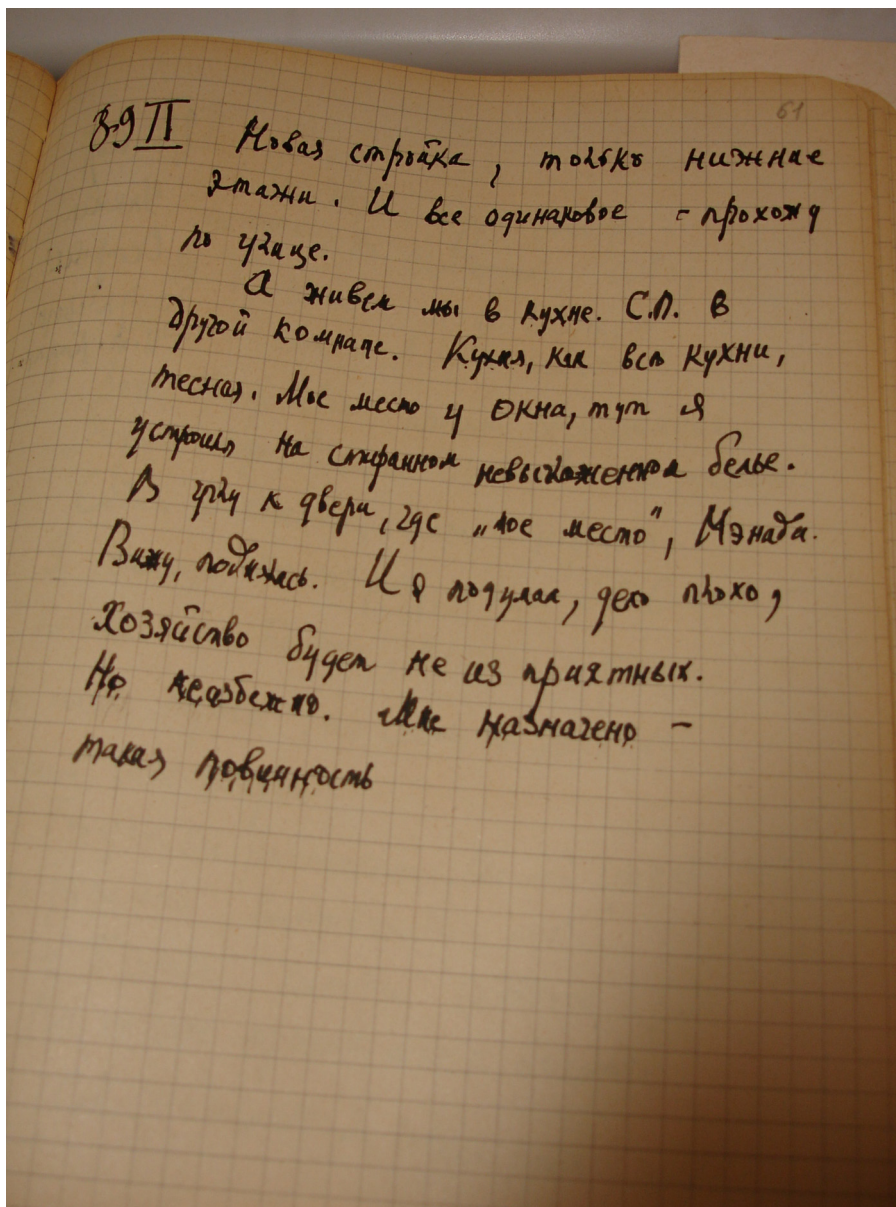 61
8-9 II Новая стройка, только нижние
этажи. И все одинаковое – прохожу
по улице.
А живем мы в кухне. С.П. в
другой комнате. Кухня, как все кухни,
тесная. Мое место у окна, тут я
устроился на невыглаженном белье.
В углу к двери, где „мое место“,
Вижу, И я подумал, дело плохо,
хозяйство будет не из приятных.
Но неизбежно. Мне назначено –
такая повинность